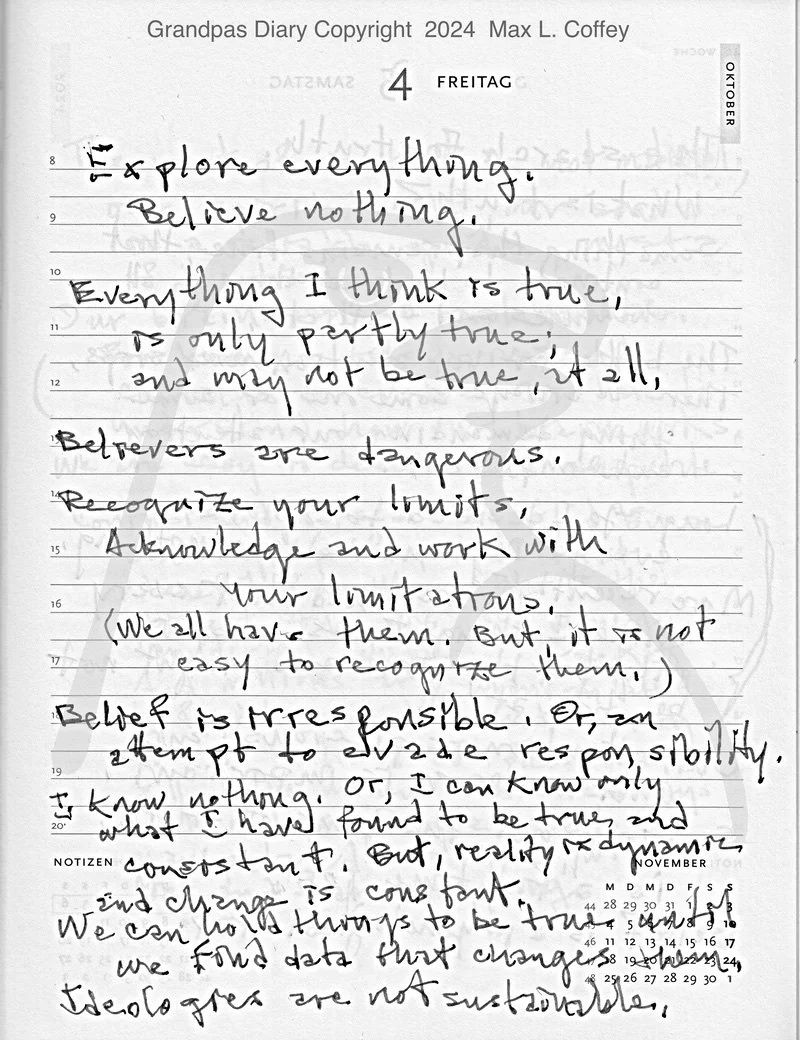 Grandpas Diary Copyright 2024 Max L. Coffey
4 FREITAG
OKTOBER
8 Explore everything.
9 Believe nothing.
10 Everything I think is true,
11 is only partly true;
12 and may not be true, at all,
Believers are dangerous.
14 Recognize your limits,
15 Acknowledge and work with
16 your limitations.
(We all have them. But, it is not
17 easy to recognize them.)
Belief is irresponsible. Or, an
attempt to evade responsibility.
19 I know nothing. Or, I can know only
20 what I have found to be true, and
NOTIZEN consistant. But, reality is dynamic
NOVEMBER
and change is constant.
We can hold things to be true until
we find data that changes them,
Ideologies are not sustainable,
M D M D F S S
44 28 29 30 31 1 2 3
45 4 5 6 7 8 9 10
46 11 12 13 14 15 16 17
47 18 19 20 21 22 23 24
48 25 26 27 28 29 30 1